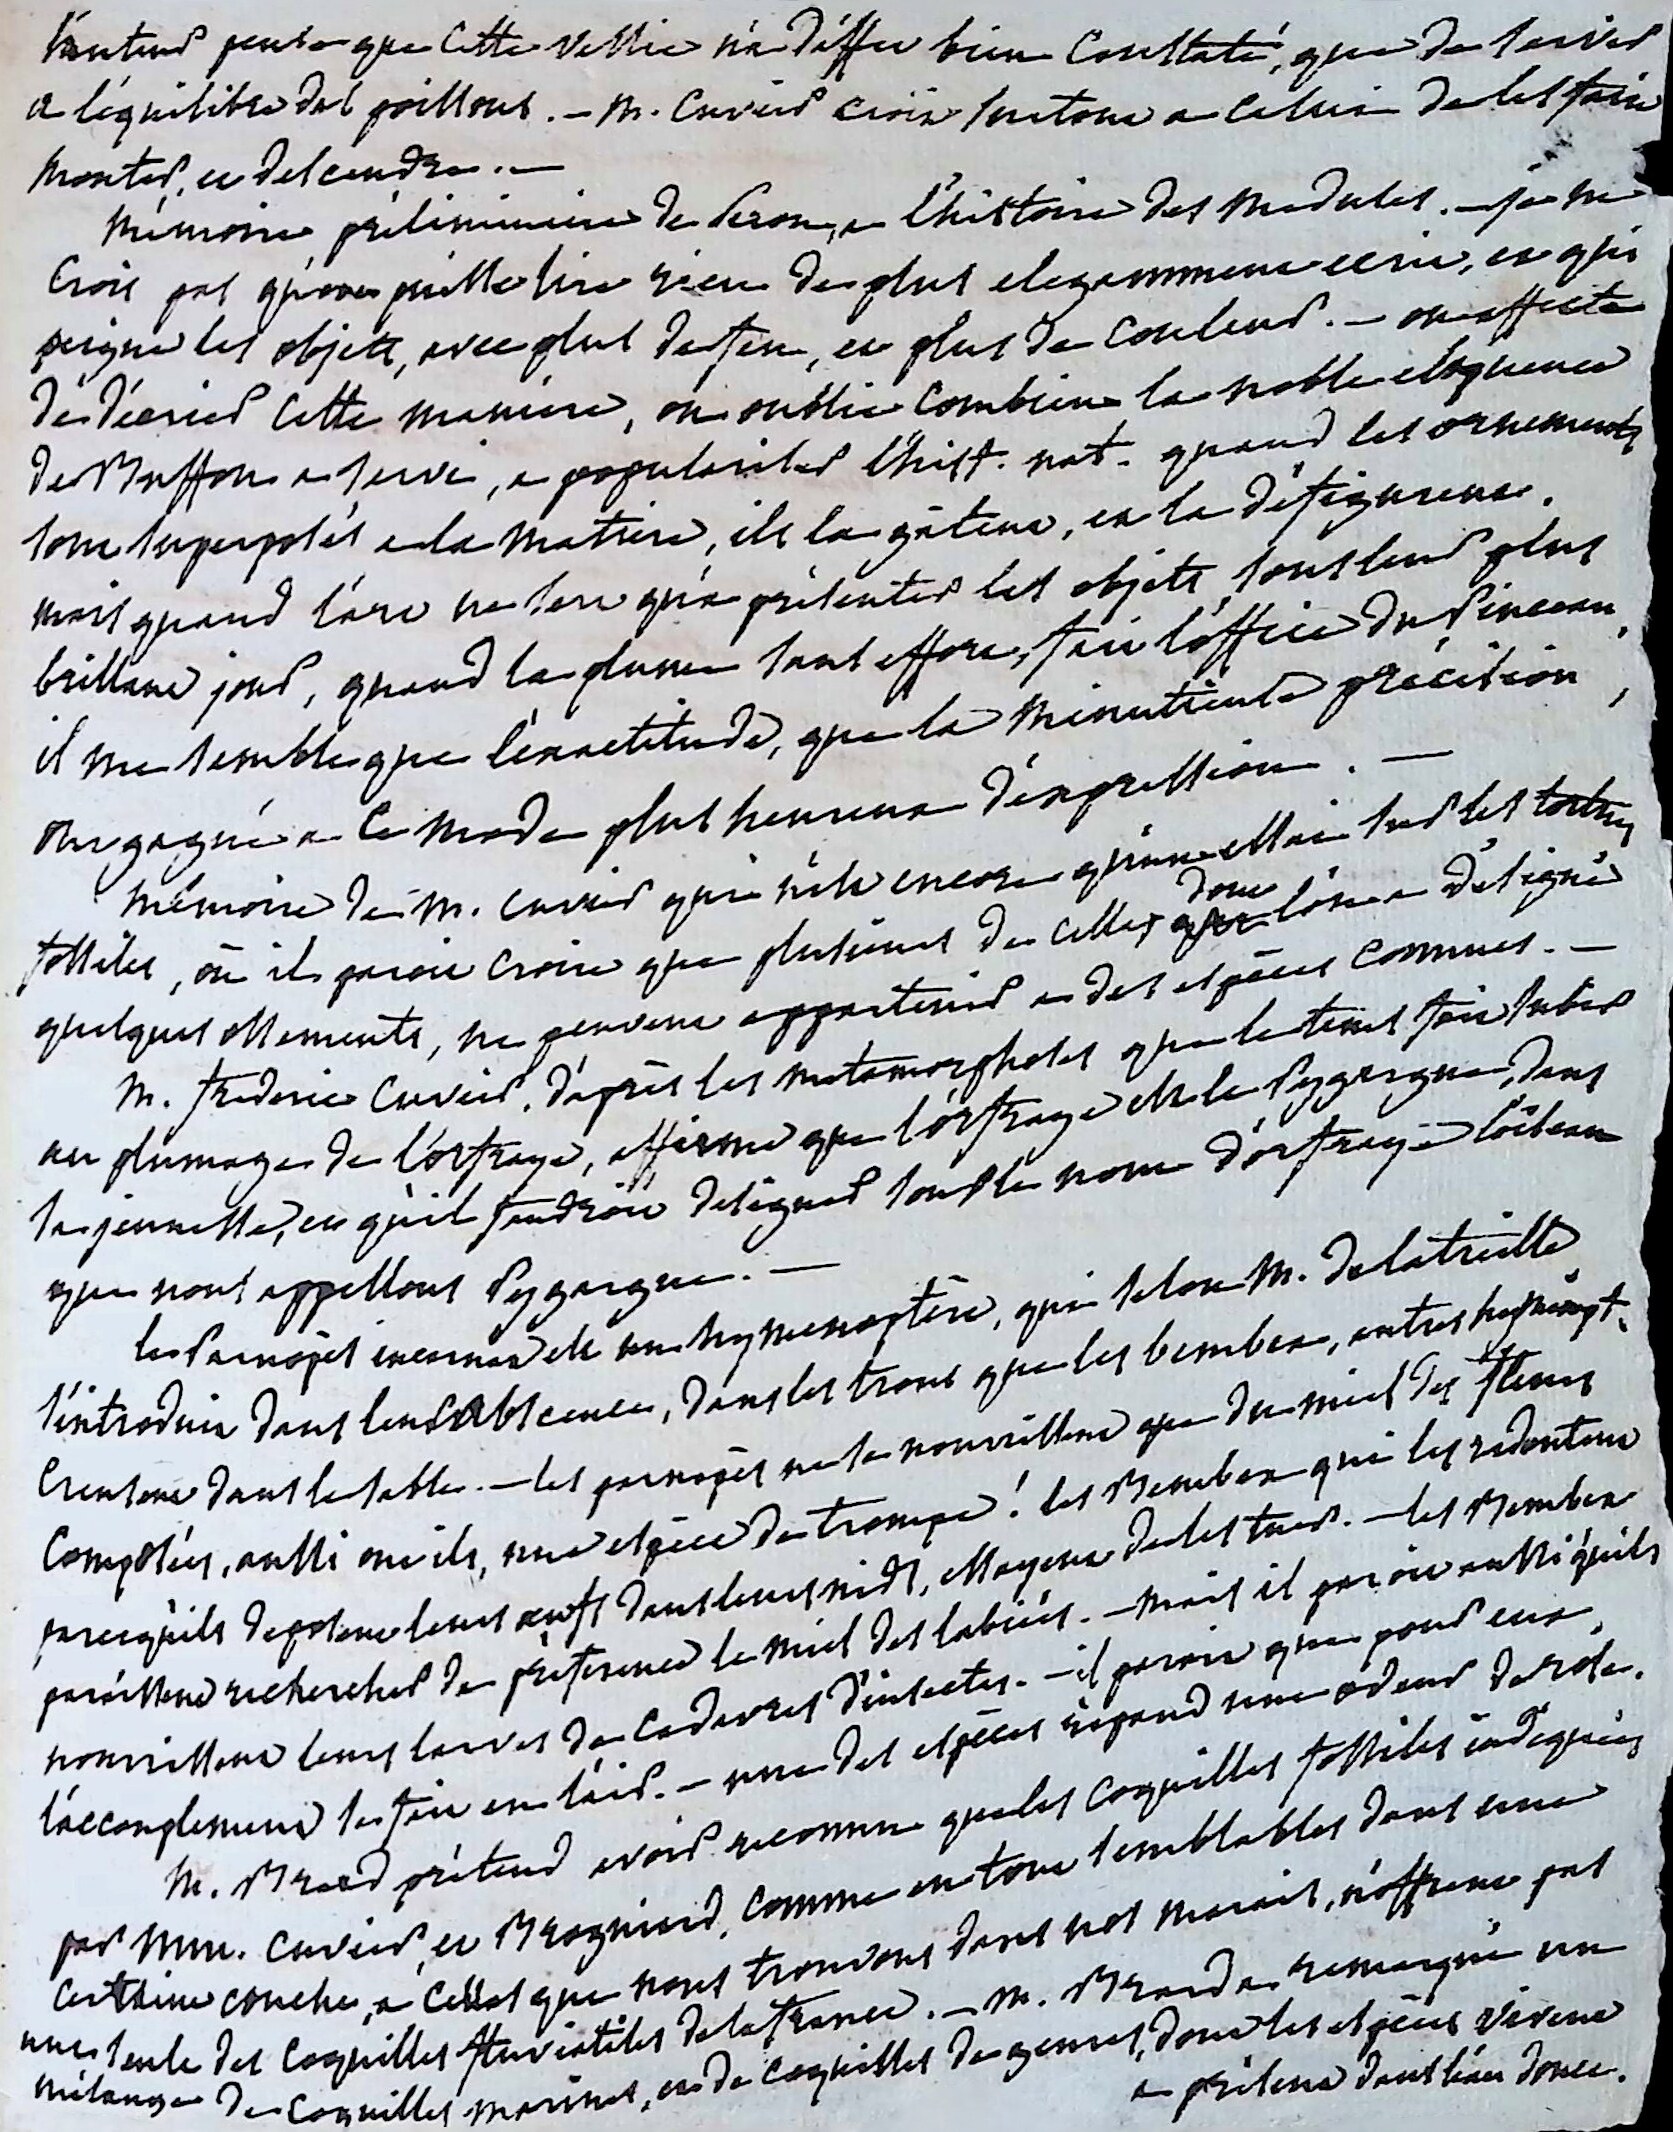 l'auteur pense que cette vessie n'a d'effet bien constaté, que de servir
a l'équilibre des poissons. — M. Cuvier croit surtout a celui de les faire
monter, et descendre. —
Mémoire préliminaire de Peron, a l'histoire des meduses. — je ne
crois pas qu'on puisse lire rien de plus elegamment ecrit, et qui
peigne les objets, avec plus de feu, et plus de couleur. — on affecte
de décrier cette maniere, on oublie combien la noble eloquence
de Buffon a servi, a populariser l'hist. nat. quand les ornements
sont superposés a la matiere, ils la gâtent, et la défigurent.
mais quand l'art ne sert qu'a présenter les objets, sous leur plus
brillant jour, quand la plume sans effort, fait l'office du Pinceau,
il me semble que l'exactitude, que la minutieuse précision,
ont gagné a ce mode plus heureux d'expression. —
Mémoire de M. Cuvier qui n'est encore qu'un essai sur les tortues
fossiles, où il paroit croire que plusieurs de celles dont l'on a désigné
quelques ossements, ne peuvent appartenir a des espèces connues. —
M. frederic Cuvier, d'après les metamorphoses que le tems fait subir
au plumage de l'orfraye, affirme que l'orfraye est le Pygargue, dans
sa jeunesse, et qu'il faudroit designer sous le nom d'orfraye l'oiseau
que nous appellons Pygargue. —
le Parnopes incarnat est un hymenoptère, qui selon M. de latreille
s'introduit dans leur absence, dans les trous que les bembex, autres hyménopt.
creusent dans le sable. — les parnopès ne se nourrissent que du miel des fleurs
composées, aussi ont ils, une espèce de trompe! les Bembex qui les redoutent
parcequ'ils deposent leurs œufs dans leurs nids, essayent de les tuer. — les Bembex
paroissent rechercher de préférence le miel des labiées. — mais il paroit aussi qu'ils
nourrissent leurs larves de cadavres d'insectes. — il paroit que pour eux,
l'accouplement se fait en l'air. — une des espèces répand une odeur de rose.
M. Brard prétend avoir reconnu que les coquilles fossiles indiquées
par Mm. Cuvier, et Brogniard, comme en tout semblables dans une
certaine couche, a celles que nous trouvons dans nos marais, n'offrent pas
une seule des coquilles fluviatiles de la france. — M. Brard a remarqué un
mélange de coquilles marines, et de coquilles de genres, dont les espèces vivent
a présent dans l'eau douce.